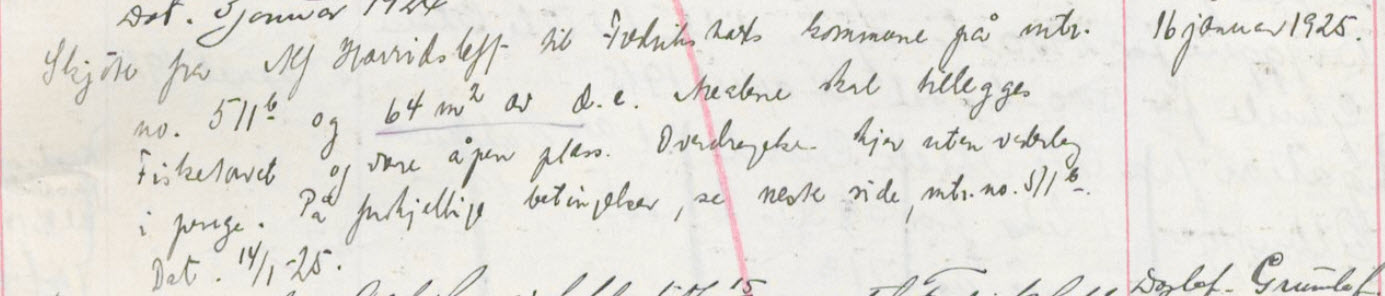 Dat. 3 januar 1924
Skjöte fra Alf Harridsleff til Fredrikstads kommune på mtr. 16 januar 1925.
no. 511b og 64 m2 av d.e. Arealene skal tillegges
Fisketorvet og være åpen plass. Overdragelsen skjer uten vederlag
i penge. På forskjellige betingelser, se neste side, mtr. no. 511b.
Dat. 14/1-25.
Dagbok- Grunnbok